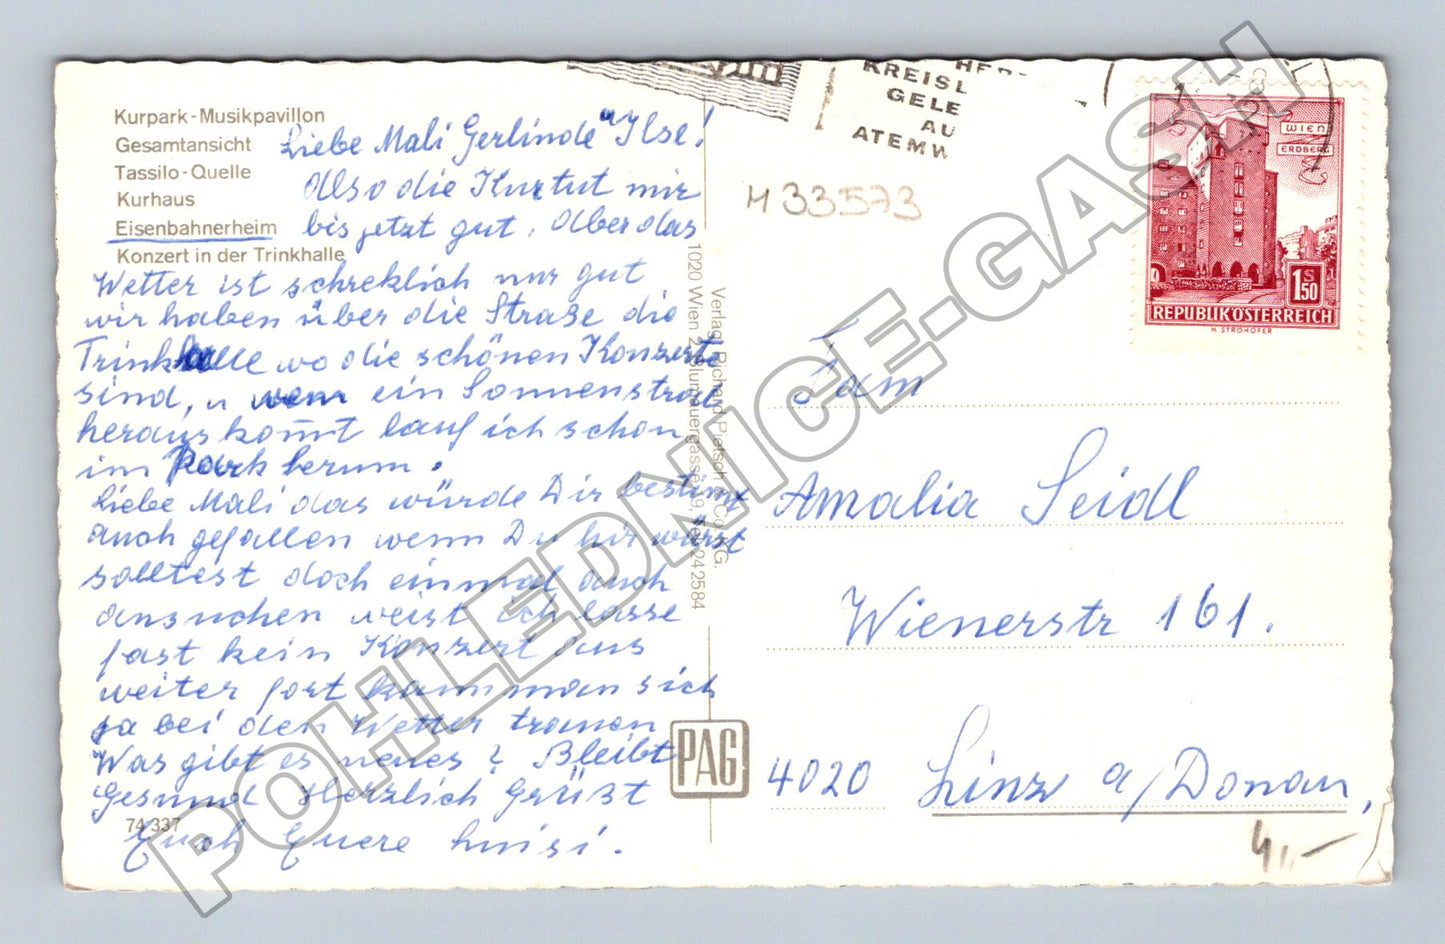 Kurpark-Musikpavillon
Gesamtansicht
Tassilo-Quelle
Kurhaus
Eisenbahnerheim
Konzert in der Trinkhalle
Liebe Mali Gerlinde u Ilse!
Also die Kur tut mir
bis jetzt gut. Aber das
Wetter ist schreklich nur gut
wir haben über die Straße die
Trinkhalle wo die schönen Konzerte
sind, u wenn ein Sonnenstral
heraus kommt lauf ich schon
im Park herum.
Liebe Mali das würde Dir bestimt
auch gefallen wenn Du hir wärst
solltest doch einmal auch
ansuchen weist ich lasse
fast kein Konzert aus
weiter fort kann man sich
ja bei den Wetter trauen
Was gibt es neues? Bleibt
Gesund Herzlich Grüßt
Euch Euere
74 337
Verlag: Richard Pietsch & Co. KG.
1020 Wien 2, Blumauergasse 19, Tel. 242584
PAG
KREISL
GELE
AU
ATEMW
M 33573
WIEN
ERDBERG
1.50 S
REPUBLIK ÖSTERREICH
H. STROHOFER
Fam
Amalia Seidl
Wienerstr 161.
4020 Linz a/Donau,
POHLEDNICE-GASH